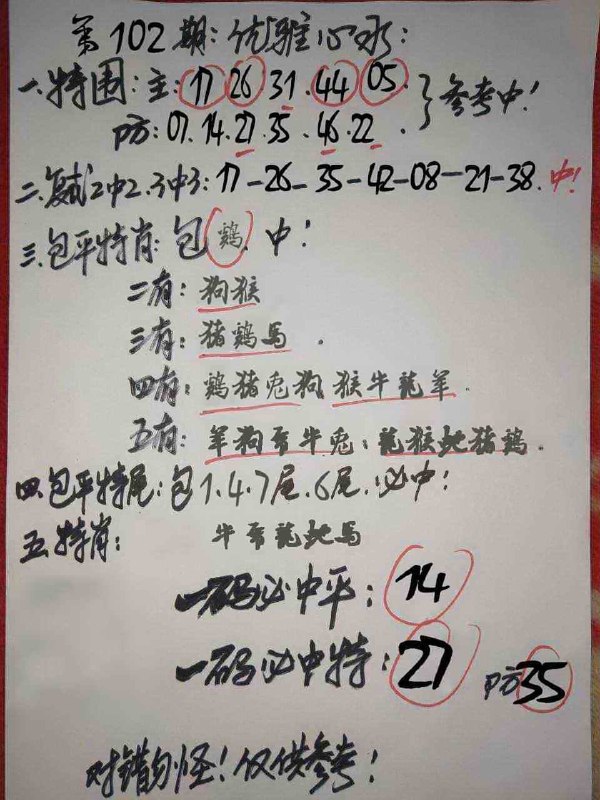 第102期:优雅心水:
一.特围:主:17 26 31.44 05.
防:07.14.27.35.46.22.
}参考中!
二.复式2中2.3中3:17-26-35-42-08-21-38.中!
三.包平特肖:包鷄.中!
二有:狗猴
三有:猪鷄馬.
四有:鷄猪兎狗 猴牛龍羊.
五有:羊狗 牛兎:龍猴虵猪鷄.
四.包平特尾:包1.4.7尾.6尾.必中!
五.特肖: 牛 龍虵馬
一码必中平:14
一码必中特:27 防35
对错勿怪!仅供参考!